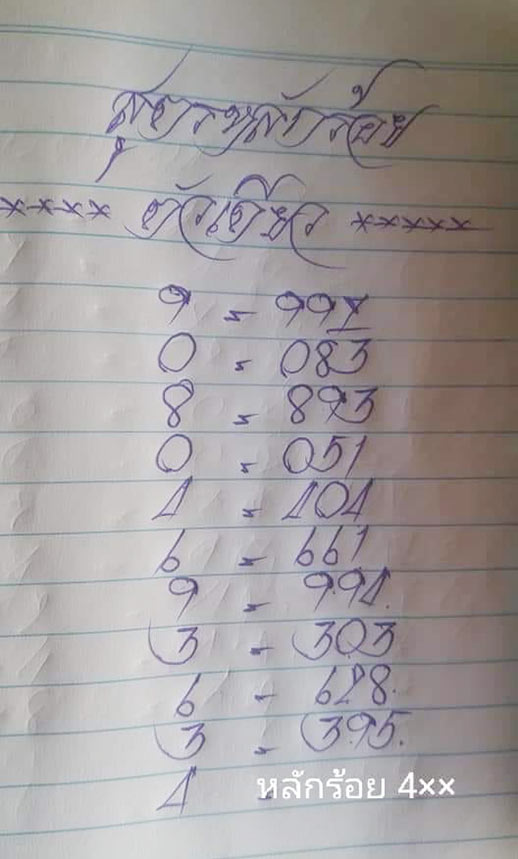 สูตรหลักร้อย
×××× ตัวเดียว ×××××
9 = 997
0 = 083
8 = 893
0 = 051
4 = 404
6 = 661
9 = 994
3 = 303
6 = 628.
3 = 395.
4 = หลักร้อย 4××